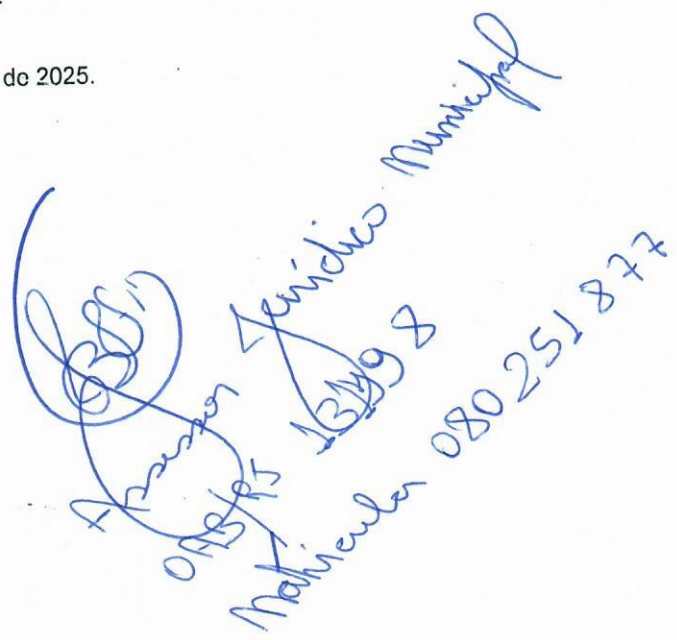 de 2025.
Assessor Jurídico Municipal
OAB/RJ
Matrícula 080251877